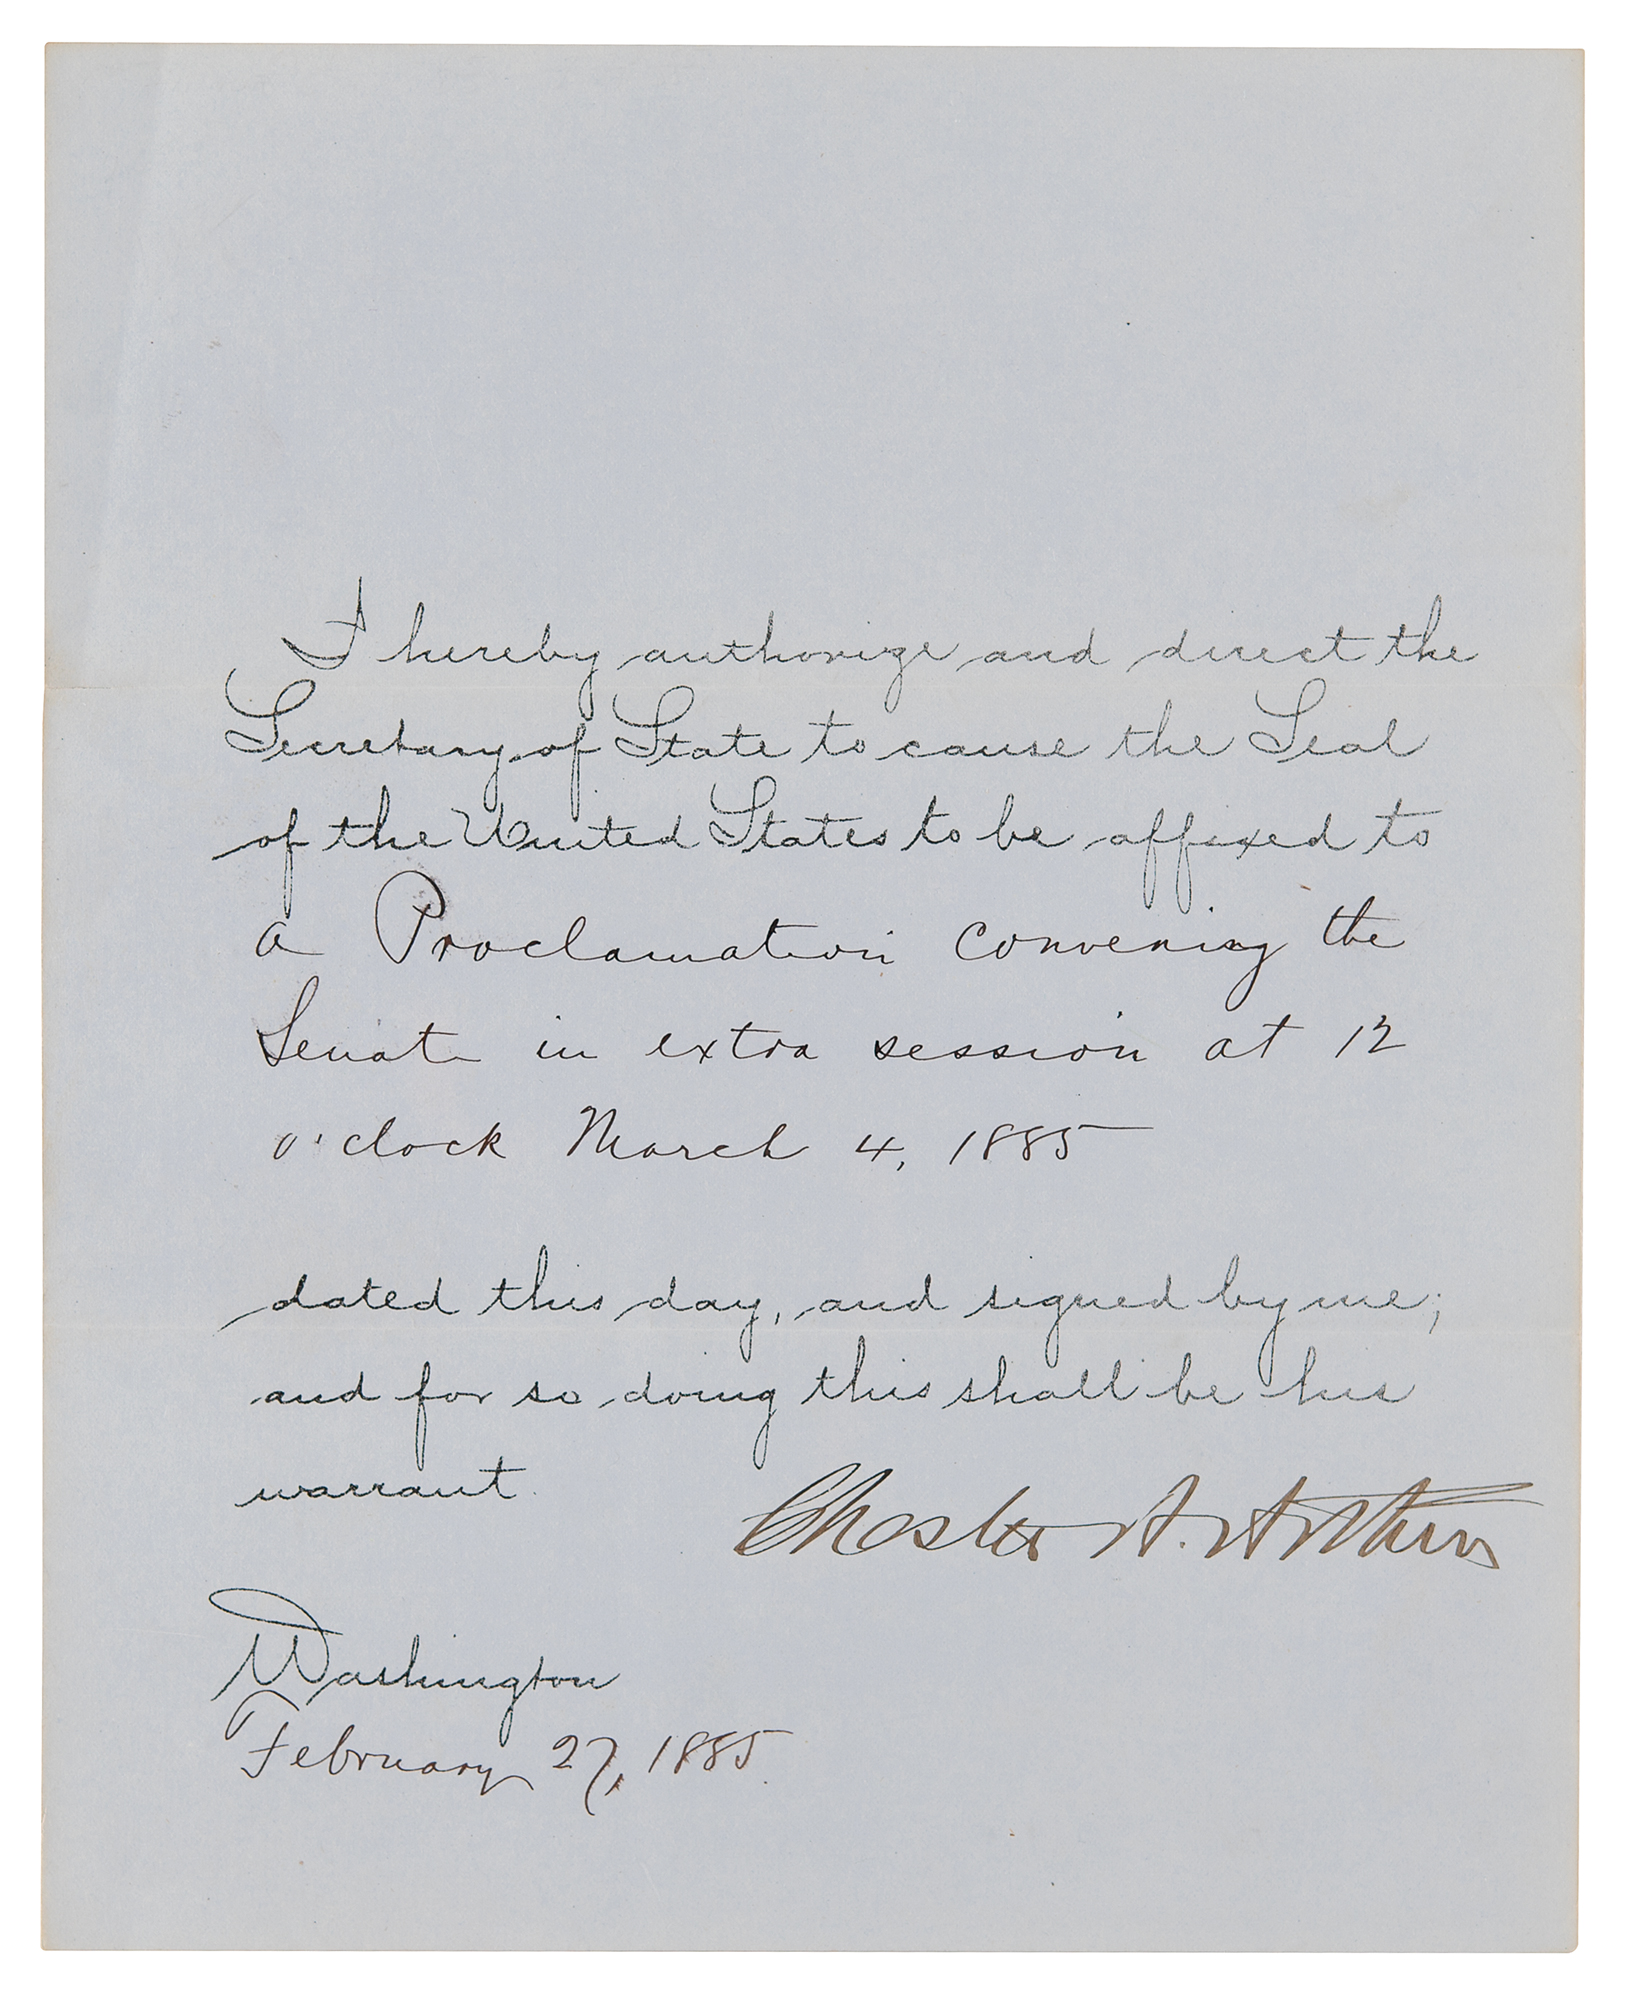 I hereby authorize and direct the
Secretary of State to cause the Seal
of the United States to be affixed to
a Proclamation convening the
Senate in extra session at 12
o'clock March 4, 1885
dated this day, and signed by me;
and for so doing this shall be his
warrant.
Chester A. Arthur
Washington
February 27, 1885.